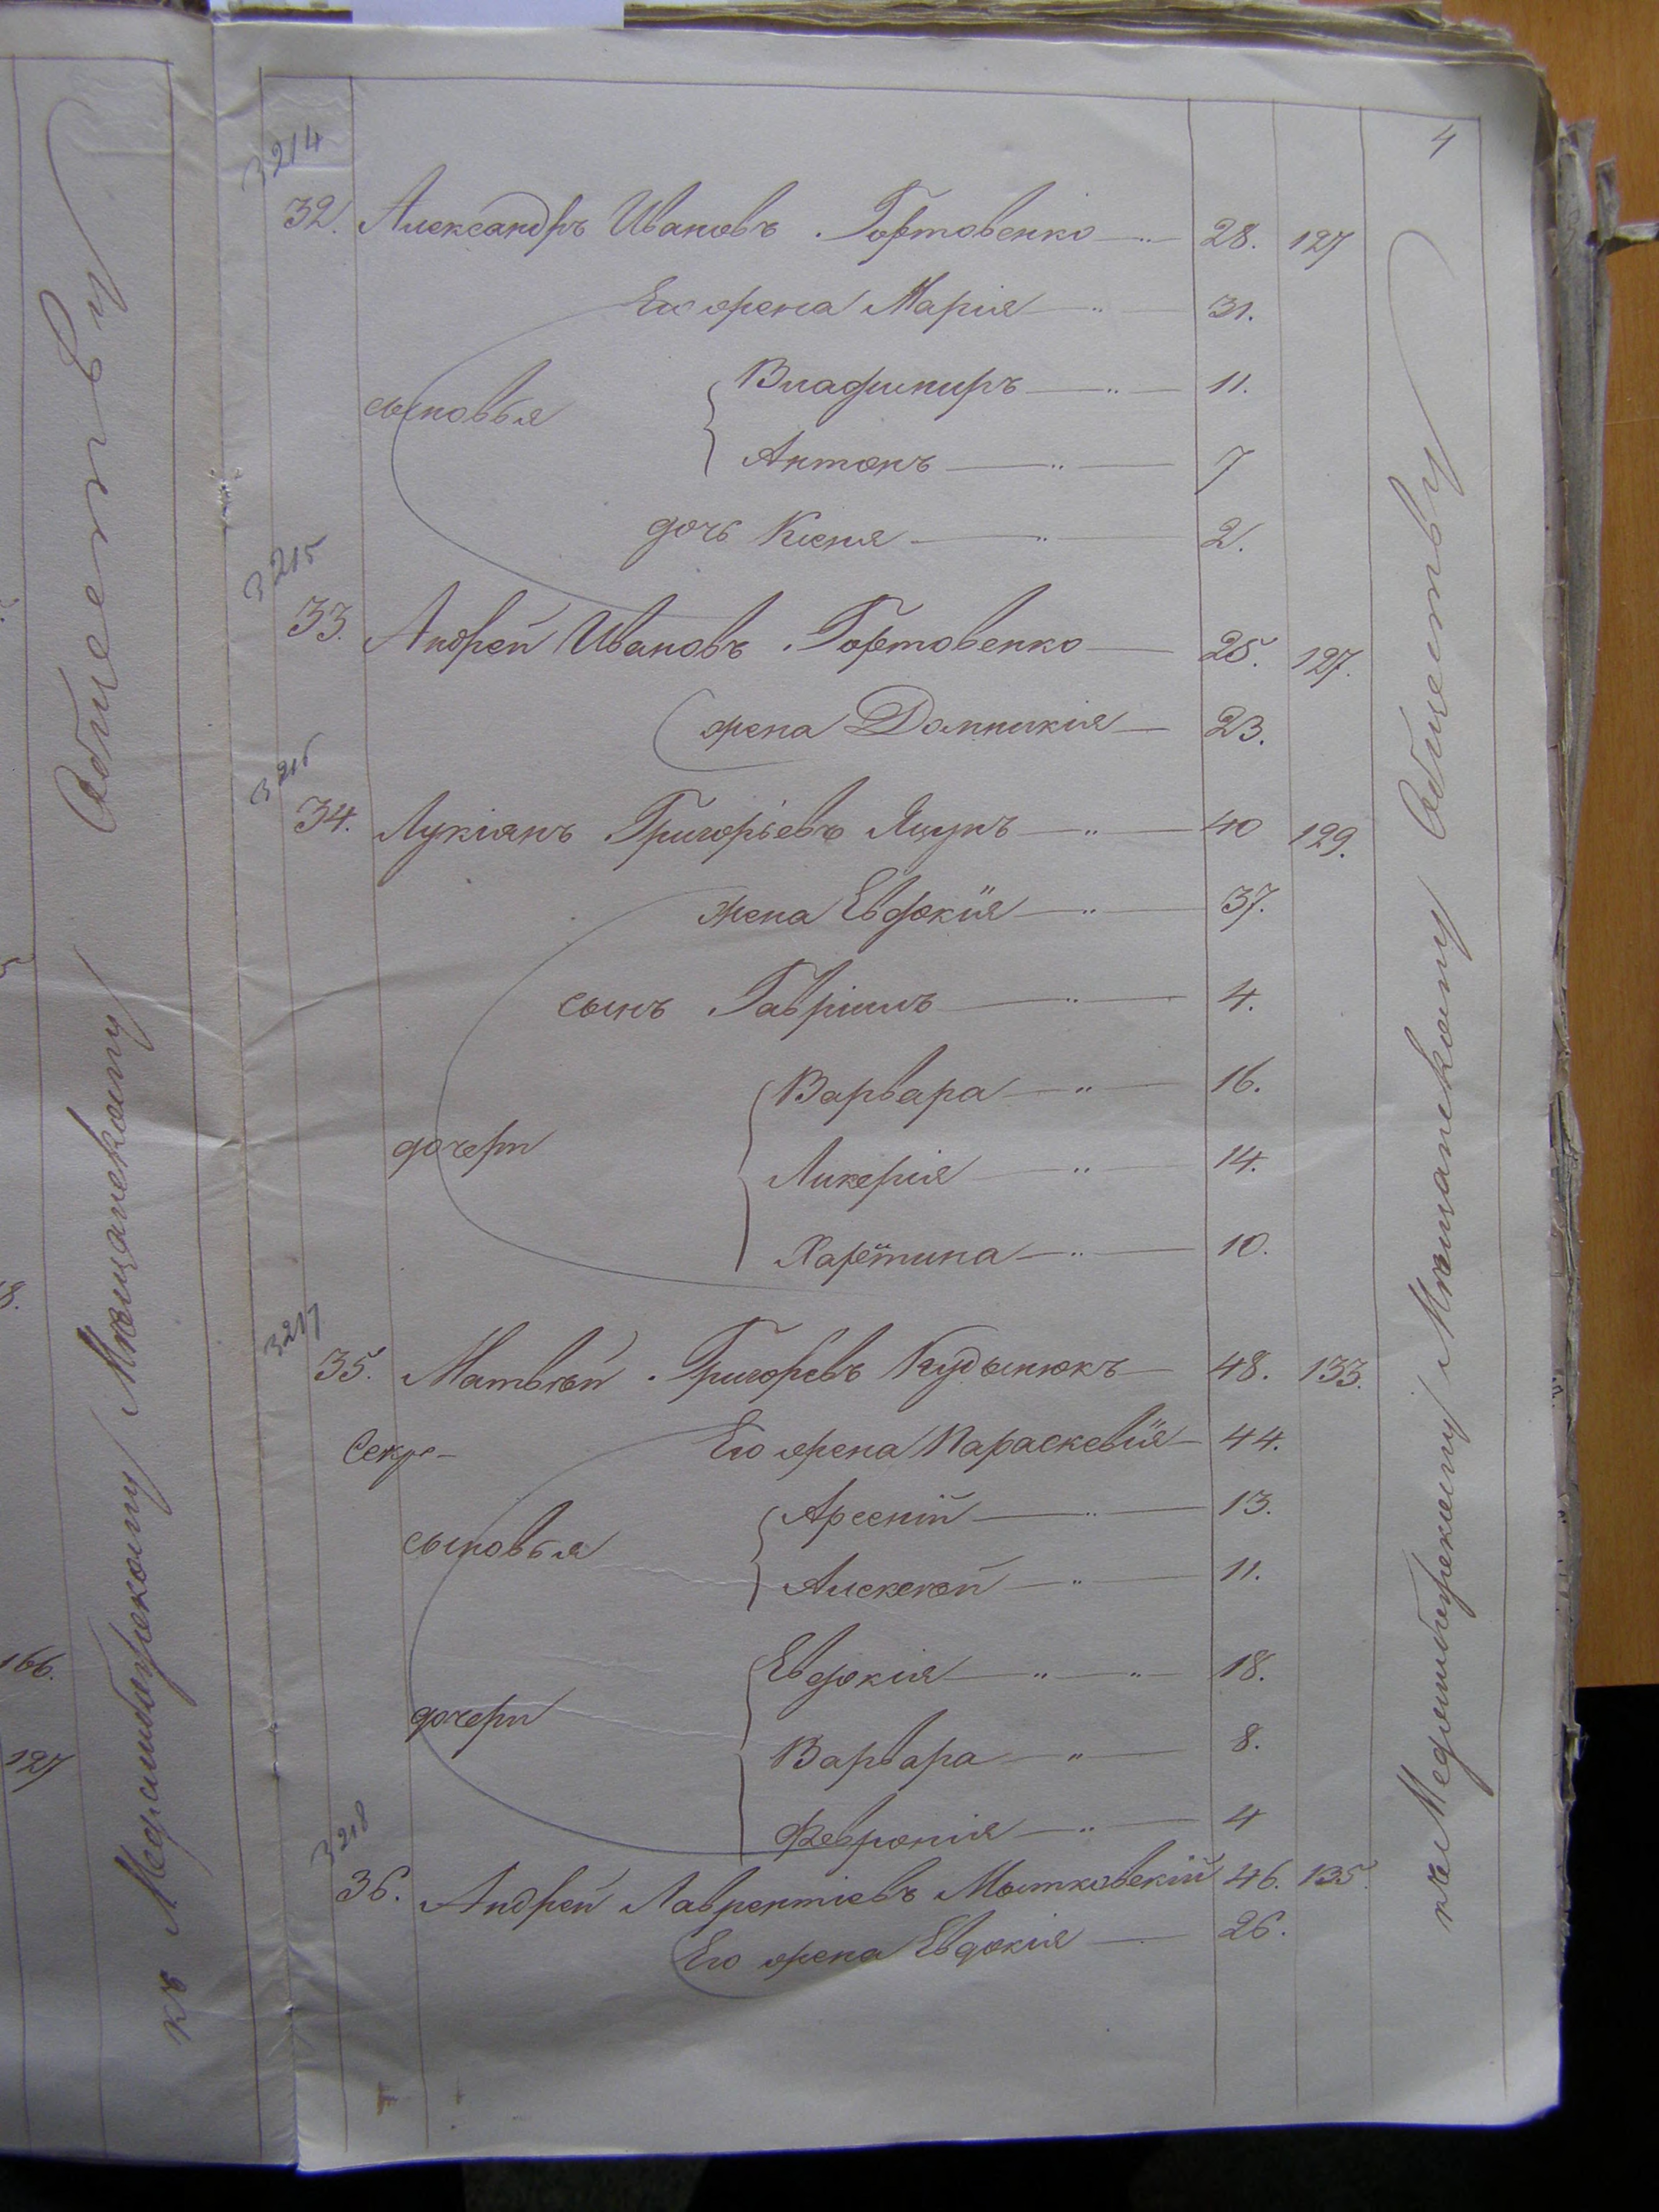 4
3214
32. Александръ Ивановъ Гортовенко 28. 127
Его жена Марія 31.
сыновья
Владимиръ 11.
Антонъ 7
дочь Ксенія 2.
3215
33. Андрей Ивановъ Гортовенко 25. 127.
жена Домникія 23.
3216
34. Лукіянъ Григорьевъ Яцукъ 40 129.
жена Евдокія 37.
сынъ Гавріилъ 4.
дочери
Варвара 16.
Ликерія 14.
Харетина 10.
3217
35. Матвѣй Григорьевъ Кудынюкъ 48. 133.
Его жена Параскевія 44.
сыновья
Арсеній 13.
Алексѣй 11.
дочери
Евдокія 18.
Варвара 8.
Февронія 4
3218
36. Андрей Лаврентіевъ Мытковскій 46. 135.
Его жена Евдокія 26.
къ Меджибожскому Мѣщанскому Обществу
къ Меджибожскому Мѣщанскому Обществу
166.
127
8.